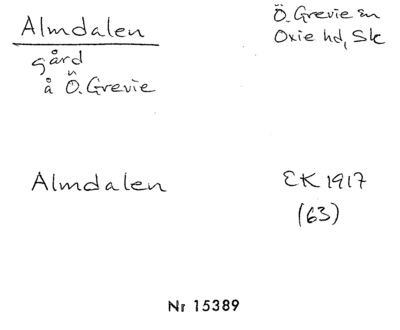 Almdalen
Ö. Grevie sn
Oxie hd, Sk
gård
å Ö. Grevie
Almdalen
EK 1917
(63)
Nr 15389